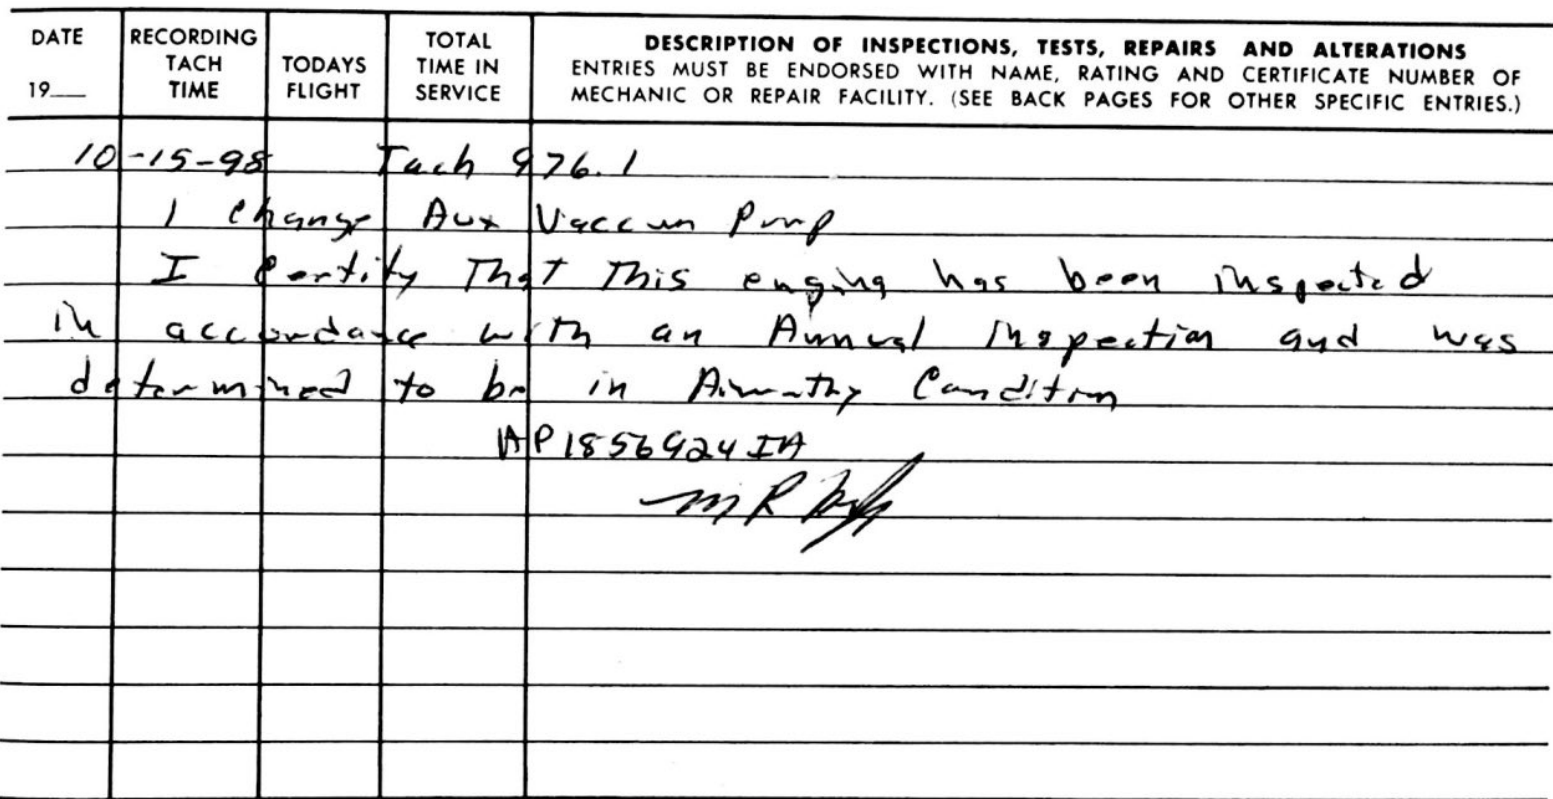 DATE
19__
RECORDING
TACH
TIME
TODAYS
FLIGHT
TOTAL
TIME IN
SERVICE
DESCRIPTION OF INSPECTIONS, TESTS, REPAIRS AND ALTERATIONS
ENTRIES MUST BE ENDORSED WITH NAME, RATING AND CERTIFICATE NUMBER OF
MECHANIC OR REPAIR FACILITY. (SEE BACK PAGES FOR OTHER SPECIFIC ENTRIES.)
10-15-98 Tach 976.1
1 Change Aux Vaccum Pump
I Certify That This engine has been inspected
in accordance with an Annual Inspection and was
determined to be in Airworthy Condition
AP1856924IA
M R